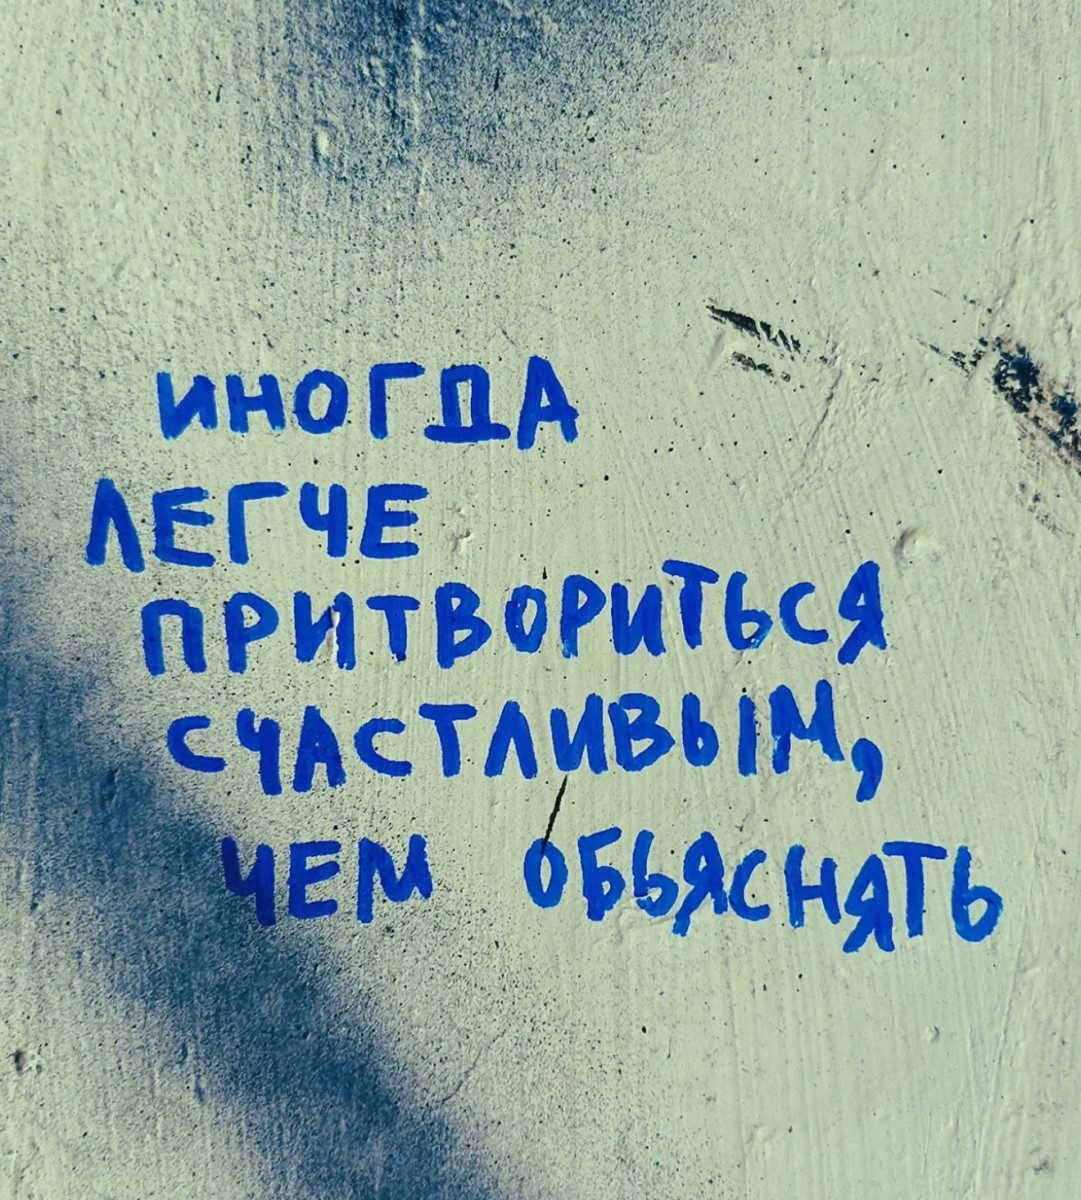 ИНОГДА
ЛЕГЧЕ
ПРИТВОРИТЬСЯ
СЧАСТЛИВЫМ,
ЧЕМ ОБЬЯСНЯТЬ